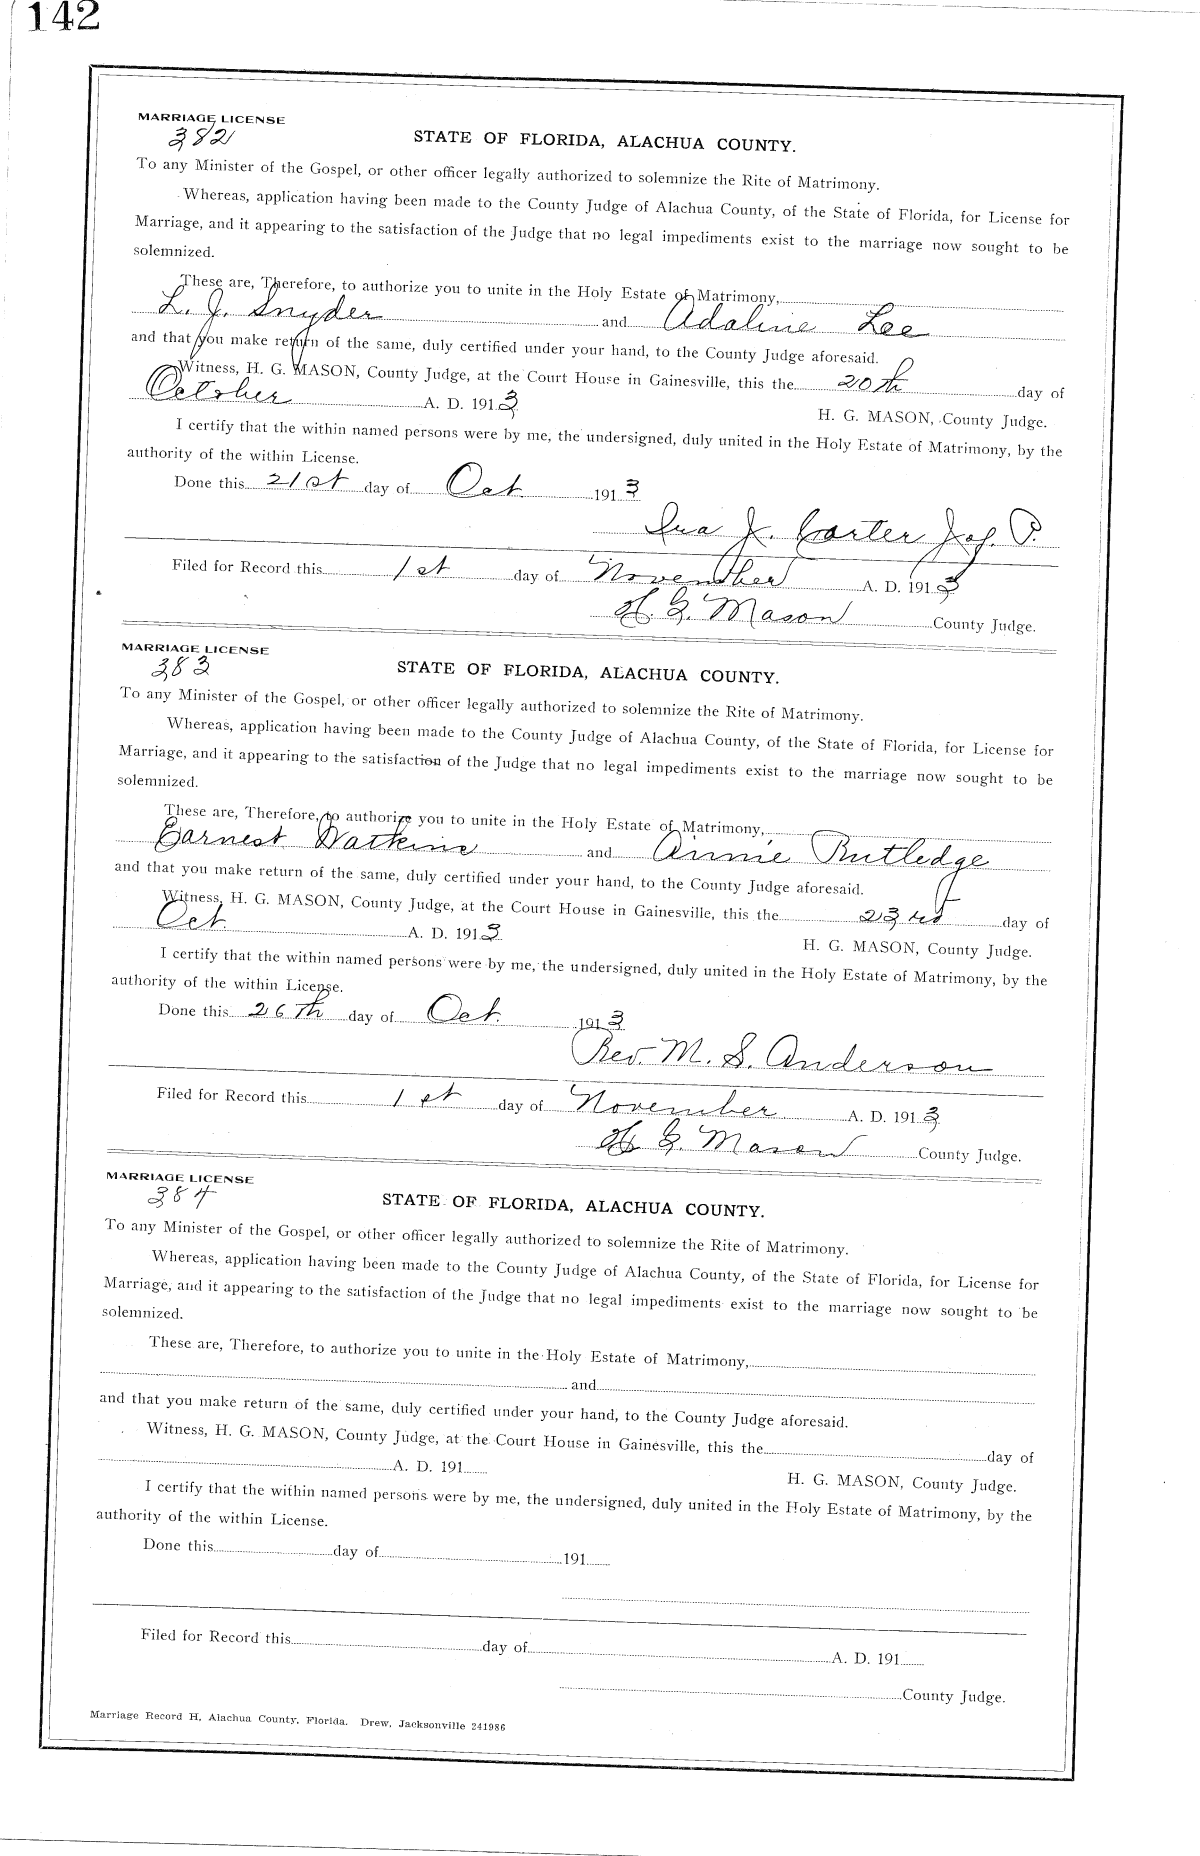 142
MARRIAGE LICENSE
382
STATE OF FLORIDA, ALACHUA COUNTY.
To any Minister of the Gospel, or other officer legally authorized to solemnize the Rite of Matrimony.
Whereas, application having been made to the County Judge of Alachua County, of the State of Florida, for License for
Marriage, and it appearing to the satisfaction of the Judge that no legal impediments exist to the marriage now sought to be
solemnized.
These are, Therefore, to authorize you to unite in the Holy Estate of Matrimony,
L. J. Snyder and Adaline Lee
and that you make return of the same, duly certified under your hand, to the County Judge aforesaid.
Witness, H. G. MASON, County Judge, at the Court House in Gainesville, this the 20th day of
October A. D. 1913
H. G. MASON, County Judge.
I certify that the within named persons were by me, the undersigned, duly united in the Holy Estate of Matrimony, by the
authority of the within License.
Done this 21st day of Oct 1913
Ira J. Carter J. of. P.
Filed for Record this 1st day of November A. D. 1913
H. G. Mason County Judge.
MARRIAGE LICENSE
383
STATE OF FLORIDA, ALACHUA COUNTY.
To any Minister of the Gospel, or other officer legally authorized to solemnize the Rite of Matrimony.
Whereas, application having been made to the County Judge of Alachua County, of the State of Florida, for License for
Marriage, and it appearing to the satisfaction of the Judge that no legal impediments exist to the marriage now sought to be
solemnized.
These are, Therefore, to authorize you to unite in the Holy Estate of Matrimony,
Earnest Watkins and Annie Rutledge
and that you make return of the same, duly certified under your hand, to the County Judge aforesaid.
Witness, H. G. MASON, County Judge, at the Court House in Gainesville, this the 23rd day of
Oct. A. D. 1913
H. G. MASON, County Judge.
I certify that the within named persons were by me, the undersigned, duly united in the Holy Estate of Matrimony, by the
authority of the within License.
Done this 26th day of Oct. 1913
Rev. M. S. Anderson
Filed for Record this 1st day of November A. D. 1913
H. G. Mason County Judge.
MARRIAGE LICENSE
384
STATE OF FLORIDA, ALACHUA COUNTY.
To any Minister of the Gospel, or other officer legally authorized to solemnize the Rite of Matrimony.
Whereas, application having been made to the County Judge of Alachua County, of the State of Florida, for License for
Marriage, and it appearing to the satisfaction of the Judge that no legal impediments exist to the marriage now sought to be
solemnized.
These are, Therefore, to authorize you to unite in the Holy Estate of Matrimony,
and
and that you make return of the same, duly certified under your hand, to the County Judge aforesaid.
Witness, H. G. MASON, County Judge, at the Court House in Gainesville, this the day of
A. D. 191
H. G. MASON, County Judge.
I certify that the within named persons were by me, the undersigned, duly united in the Holy Estate of Matrimony, by the
authority of the within License.
Done this day of 191
Filed for Record this day of A. D. 191
County Judge.
Marriage Record H, Alachua County, Florida. Drew, Jacksonville 241986